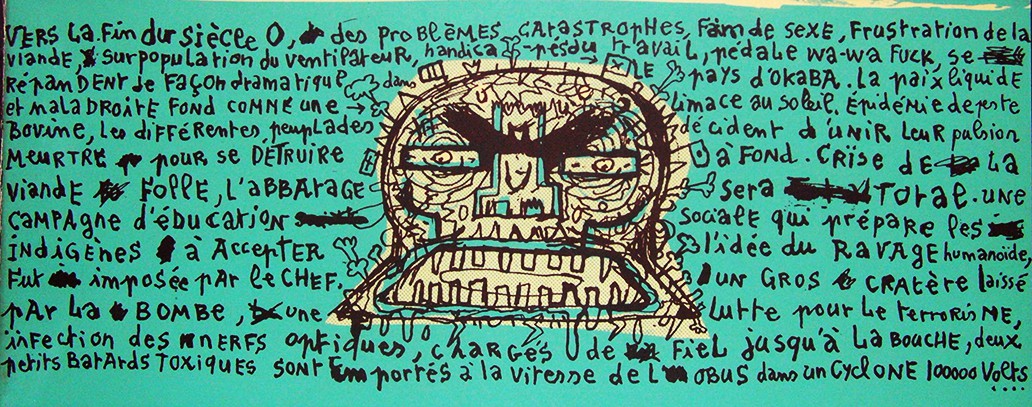 VERS La Fin du siècle O, des PROBLÈMES, CATASTROPHES, FAIM de SEXE, FRUSTRATION de la
viande, SURPOPULATION du VENTILATEUR, handica-pés du travail, pédale wa-wa Fuck, se
RÉPANDENT de FAÇON dramatique dans LE pays d'OKABA. La paix liquide
et malaDROITE FOND COMME une limace au soleil, Épidémie de peste
Bovine, Les différentes peuplades décident d'UNIR LEUR pulsion
MEURTRE pour se DÉTRUIRE à FOND. CRÏSE de La
viande FOLLE, L'ABBATAGE sera TOTAL. UNE
CAMPAGNE d'ÉDUCATION sociale qui prépare les
INDIGÈNES à ACCEPTER l'idée du RAVAGE humanoïde,
Fut imposée par le CHEF. UN GROS CRATÈRE laissé
PAR La BOMBE, une lutte pour le terrorisme,
infection des NERFS optiques, CHARGÉS de FIEL jusqu'à LA BOUCHE, deux
petits BATARDS TOXIQUES SONT Emportés à la vitesse de L'OBUS dans un CYCLONE 100000 Volts